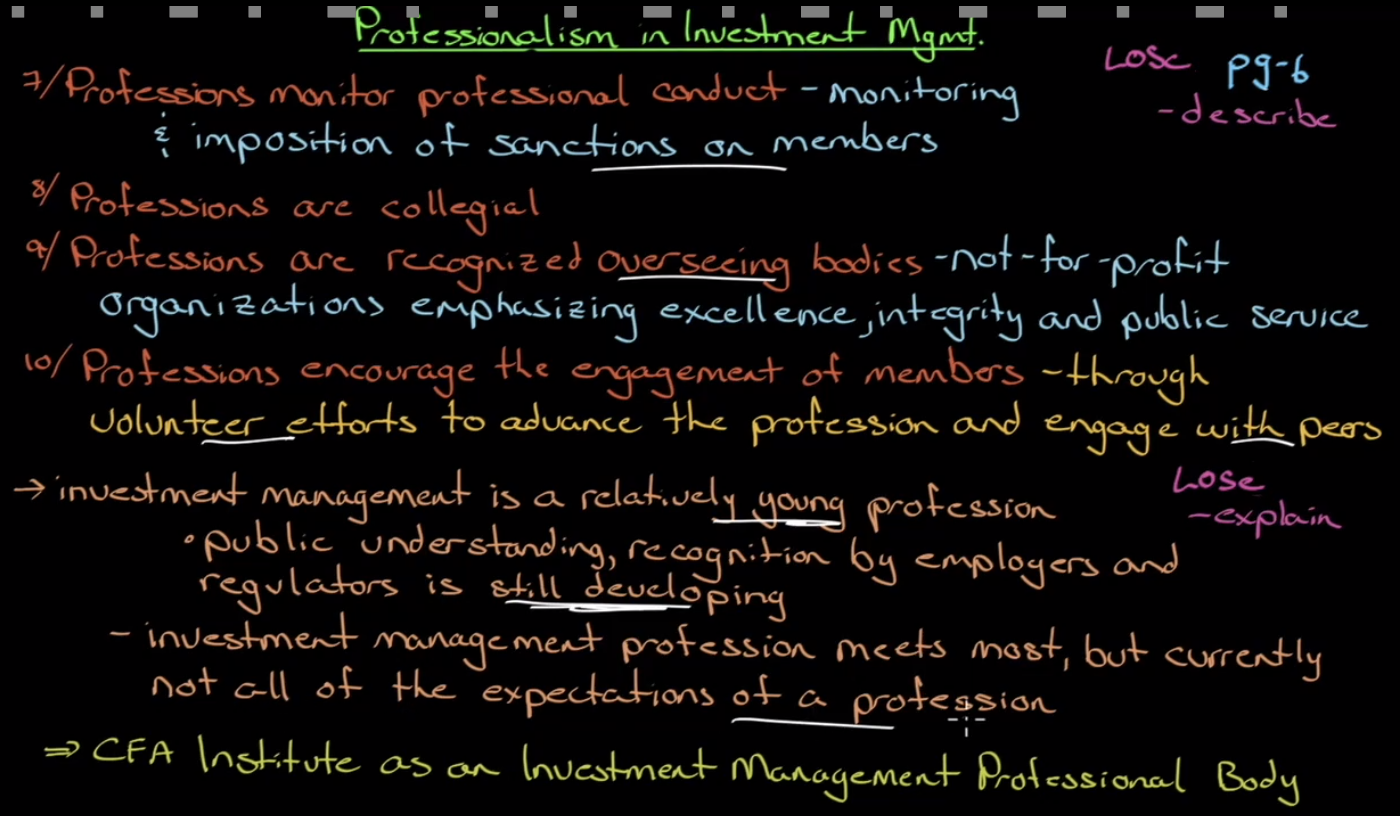 Professionalism in Investment Mgmt.
LOSc pg-6
- describe
7/ Professions monitor professional conduct - monitoring
& imposition of sanctions on members
8/ Professions are collegial
9/ Professions are recognized overseeing bodies - not-for-profit
organizations emphasizing excellence, integrity and public service
10/ Professions encourage the engagement of members - through
volunteer efforts to advance the profession and engage with peers
→ investment management is a relatively young profession
LOSe
- explain
• public understanding, recognition by employers and
regulators is still developing
- investment management profession meets most, but currently
not all of the expectations of a profession
⇒ CFA Institute as an Investment Management Professional Body